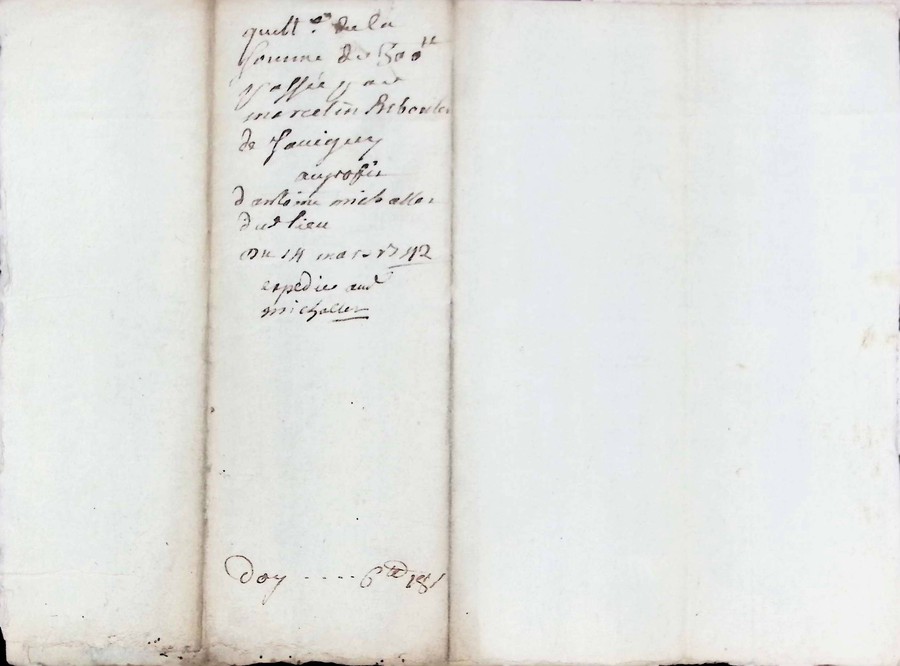 quitt.ce de la
somme de 500 tt
passée par
marcelin
de Souvigny
au profit
d'antoine michallon
dud lieu
du 14 mars 1742
expedie aud
michallon
Doy ..... 6 tt 18 s